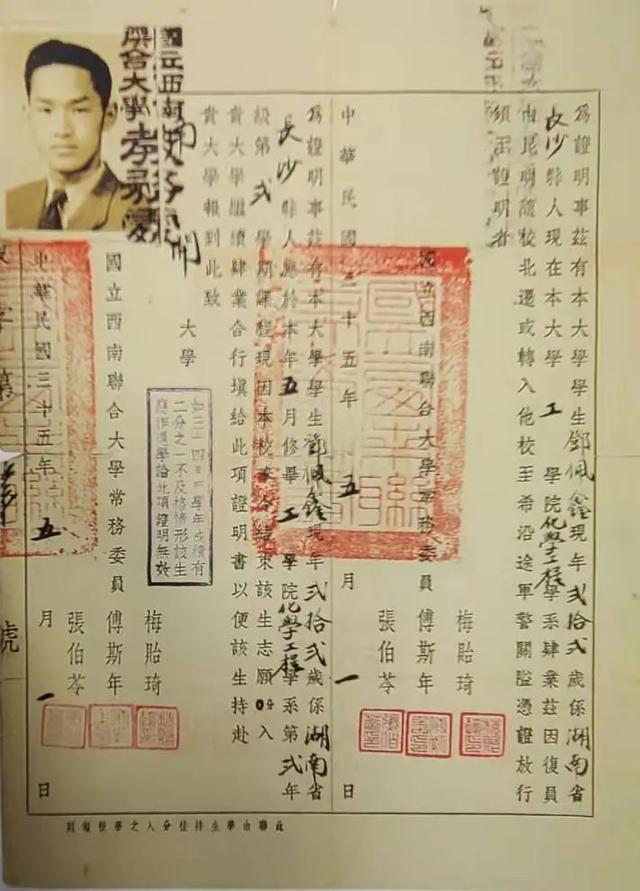 為證明事茲有本大學學生鄧佩鑫現年弍拾弍歲係湖南省
長沙縣人現在本大學工學院化學工程學系肄業茲因復員
由昆明隨校北遷或轉入他校至希沿途軍警關隘憑證放行
須至證明者
國立西南聯合大學常務委員
梅貽琦
傅斯年
張伯苓
中華民國三十五年五月一日
為證明事茲有本大學學生鄧佩鑫現年弍拾弍歲係湖南省
長沙縣人應於本年五月修畢工學院化學工程學系第弍年
級第弍學期課程現因本校奉令結束該生志願入
貴大學繼續肄業合行填給此項證明書以便該生持赴
貴大學報到此致
南開大學
學年成績有
二分之一不及格情形該生
應作退學論此項證明無效
國立西南聯合大學常務委員
梅貽琦
傅斯年
張伯苓
中華民國三十五年五月一日
字第號
國立西南
聯合大學
此聯由學生持往分入之學校報到